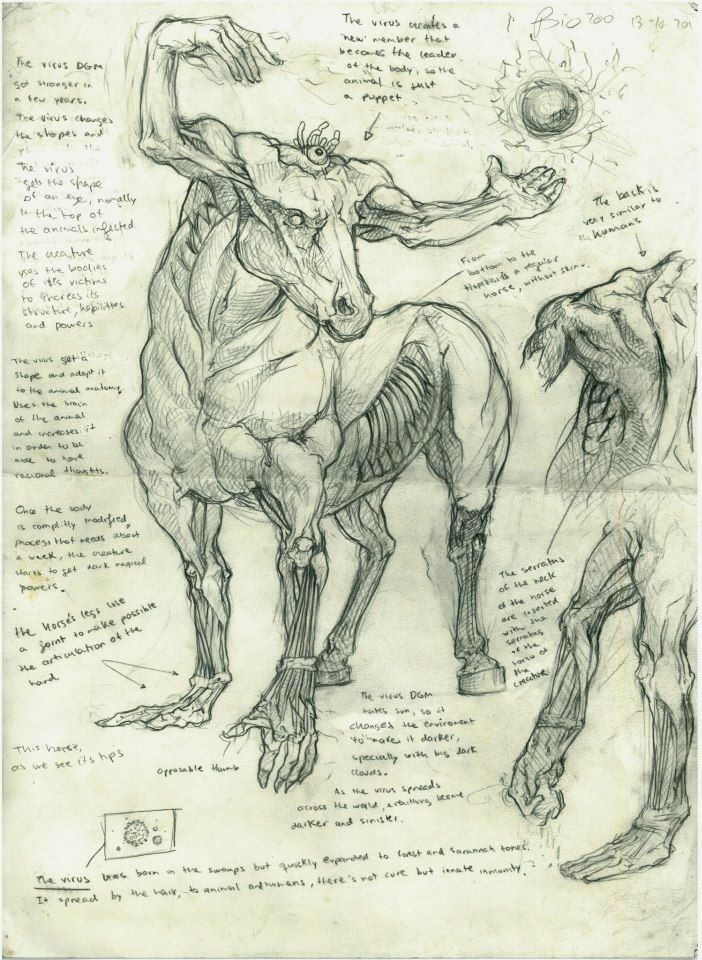 The virus creates a
new member that
becomes the leader
of the body, so the
animal is just
a puppet.
The virus DGM
got stronger in
a few years.
The virus changes
the shapes and
The virus
gets the shape
of an eye, normally
in the top of
the animals infected
The creature
uses the bodies
of it's victims
to
structure, habilities
and powers
The back is
very similar to
human's
From
bottom to the
is a regular
horse, without skin.
The virus get a
shape and adapt it
to the animal anatomy.
Uses the brain
of the animal
and increases it
in order to be
able to have
Once the body
is modified,
process that needs about
a week, the creature
starts to get dark magical
powers.
the horse's legs lose
a joint to make possible
the articulation of the
hand
The serratus
of the neck
of the horse
are inserted
with the
serratus
of the
torso of
the
creature
This horse,
as we see its tips
opposable thumb
The virus DGM
hates sun, so it
changes the enviroment
to make it darker,
specially with big dark
clouds.
As the virus spreads
across the world, everithing become
darker and sinister.
The virus born in the swamps but quickly expanded to forest and savannah zones.
It spread by the hair, to animal and humans, there's not cure but innate immunity